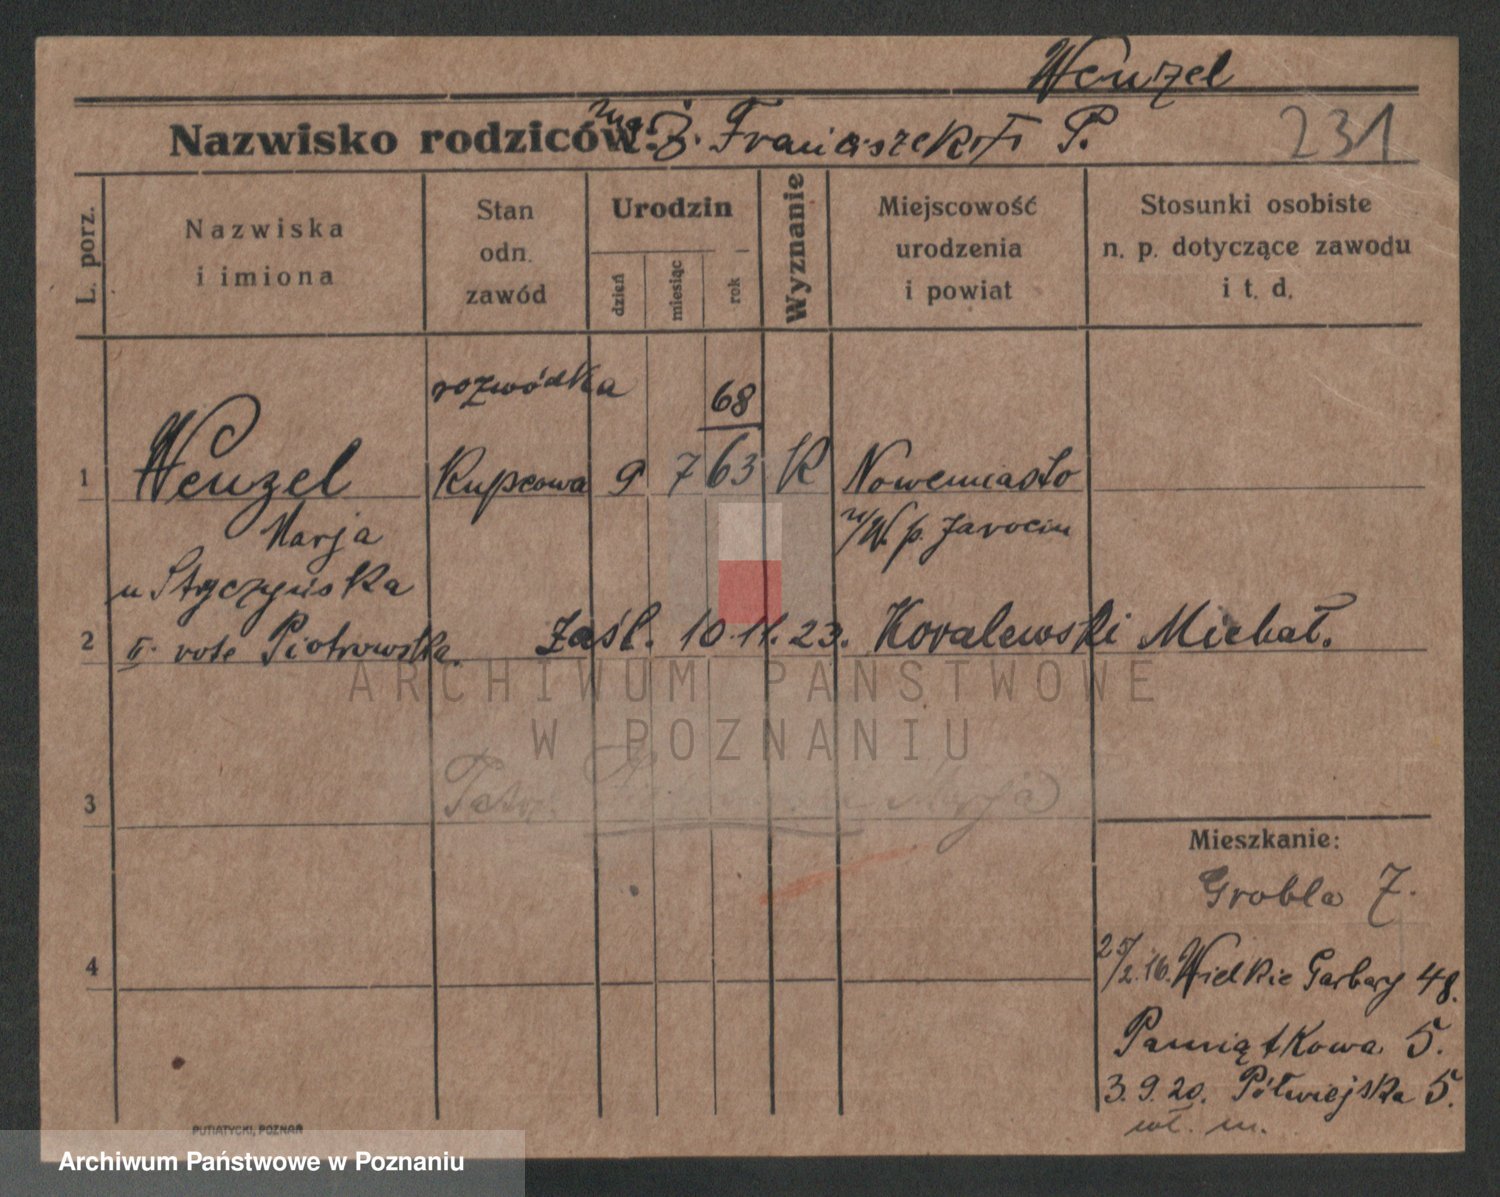 Wenzel
Nazwisko rodziców: Franciszek P.
231
L. porz.
Nazwiska
i imiona
Stan
odn.
zawód
Urodzin
dzień
miesiąc
rok
Wyznanie
Miejscowość
urodzenia
i powiat
Stosunki osobiste
n. p. dotyczące zawodu
i t. d.
rozwódka
68
1 Wenzel Kupcowa 9 7 63 K Nowemiasto
Marja n/W. p. Jarocin
u Styczyńska
2 II. voto Piotrowska. Zaśl. 10.11.23. Kovalewski Michał.
ARCHIWUM PAŃSTWOWE
W POZNANIU
3 Marja
Mieszkanie:
Grobla 7.
4 25/2.16. Wielkie Garbary 48.
Pamiątkowa 5.
3.9.20. Półwiejska 5.
wł. m.
PUTIATYCKI, POZNAŃ
Archiwum Państwowe w Poznaniu